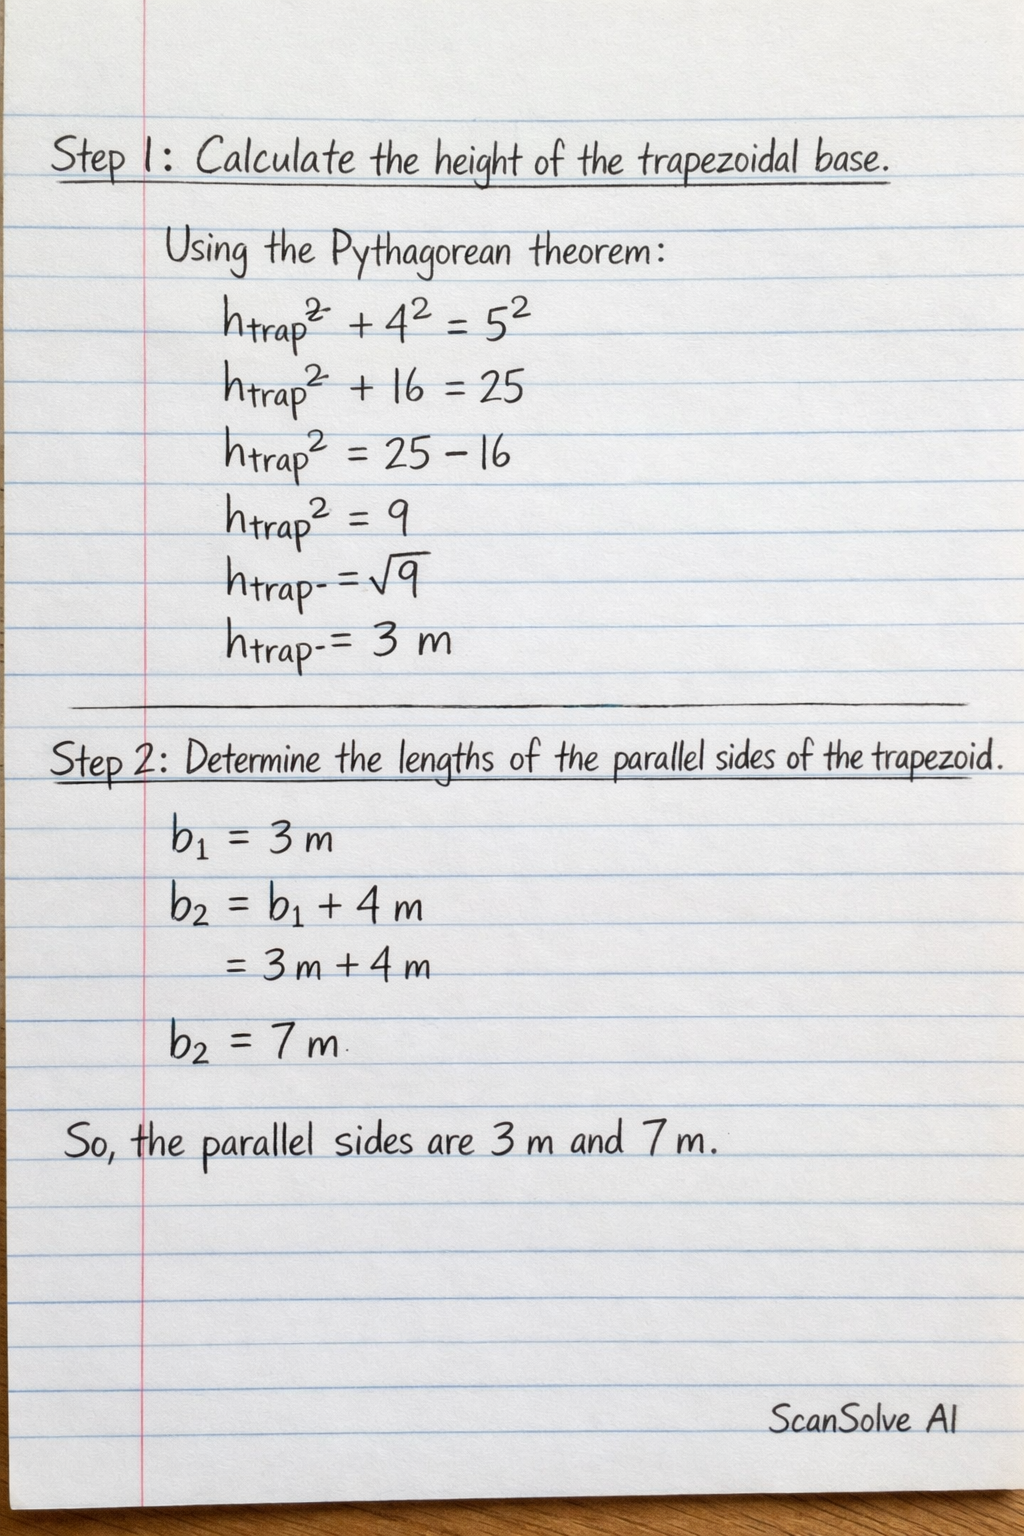 Step 1: Calculate the height of the trapezoidal base.
Using the Pythagorean theorem:
h_trap² + 4² = 5²
h_trap² + 16 = 25
h_trap² = 25 – 16
h_trap² = 9
h_trap- = √9
h_trap- = 3 m
Step 2: Determine the lengths of the parallel sides of the trapezoid.
b₁ = 3 m
b₂ = b₁ + 4 m
= 3 m + 4 m
b₂ = 7 m.
So, the parallel sides are 3 m and 7 m.
ScanSolve AI